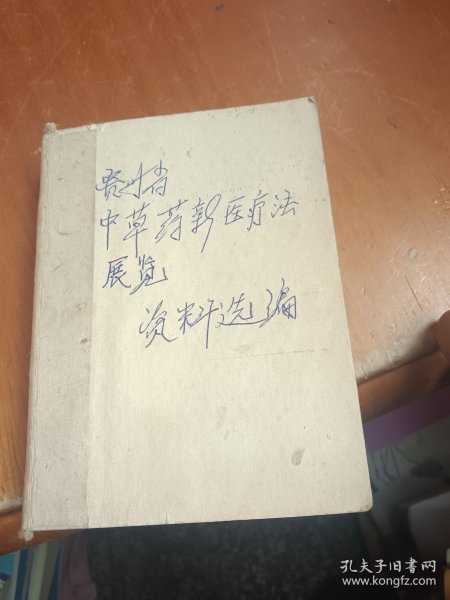 贵州省
中草药新医疗法
展览
资料选编
孔夫子旧书网
www.kongfz.com